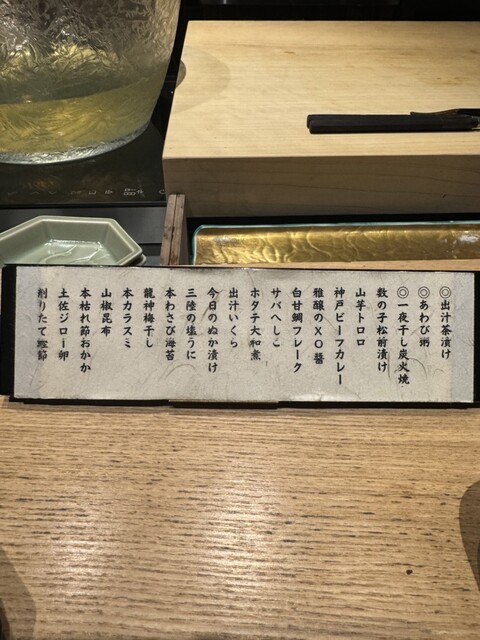 ◎出汁茶漬け
◎あわび粥
◎一夜干し炭火焼
数の子松前漬け
山芋トロロ
神戸ビーフカレー
雅醸のXO醤
白甘鯛フレーク
サバへしこ
ホタテ大和煮
出汁いくら
今日のぬか漬け
三陸の塩うに
本わさび海苔
龍神梅干し
本カラスミ
山椒昆布
本枯れ節おかか
土佐ジロー卵
削りたて鰹節